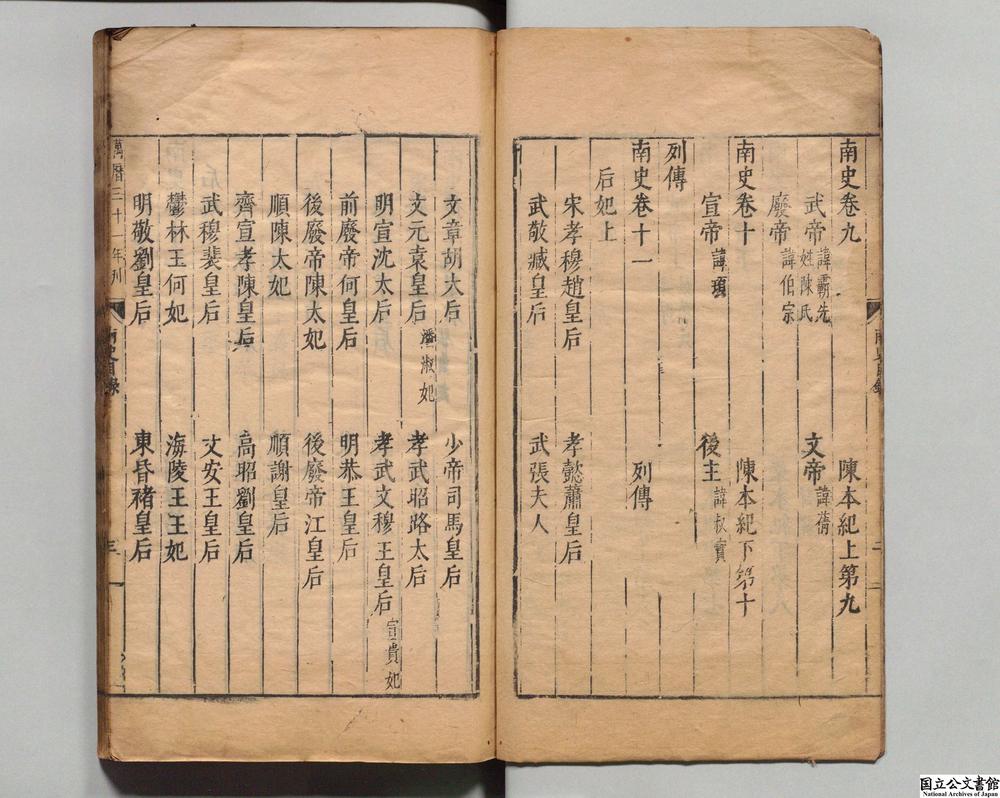 南史卷九　陳本紀上第九
武帝諱霸先姓陳氏　文帝諱蒨
廢帝諱伯宗
南史卷十　陳本紀下第十
宣帝諱頊　後主諱叔寶
列傳
南史卷十一　列傳
后妃上
宋孝穆趙皇后　孝懿蕭皇后
武敬臧皇后　武張夫人
文章胡太后　少帝司馬皇后
文元袁皇后潘淑妃　孝武昭路太后
明宣沈太后　孝武文穆王皇后宣貴妃
前廢帝何皇后　明恭王皇后
後廢帝陳太妃　後廢帝江皇后
順陳太妃　順謝皇后
齊宣孝陳皇后　高昭劉皇后
武穆裴皇后　文安王皇后
鬱林王何妃　海陵王王妃
明敬劉皇后　東昏褚皇后
萬曆三十一年刊　南史目錄　三
国立公文書館
National Archives of Japan